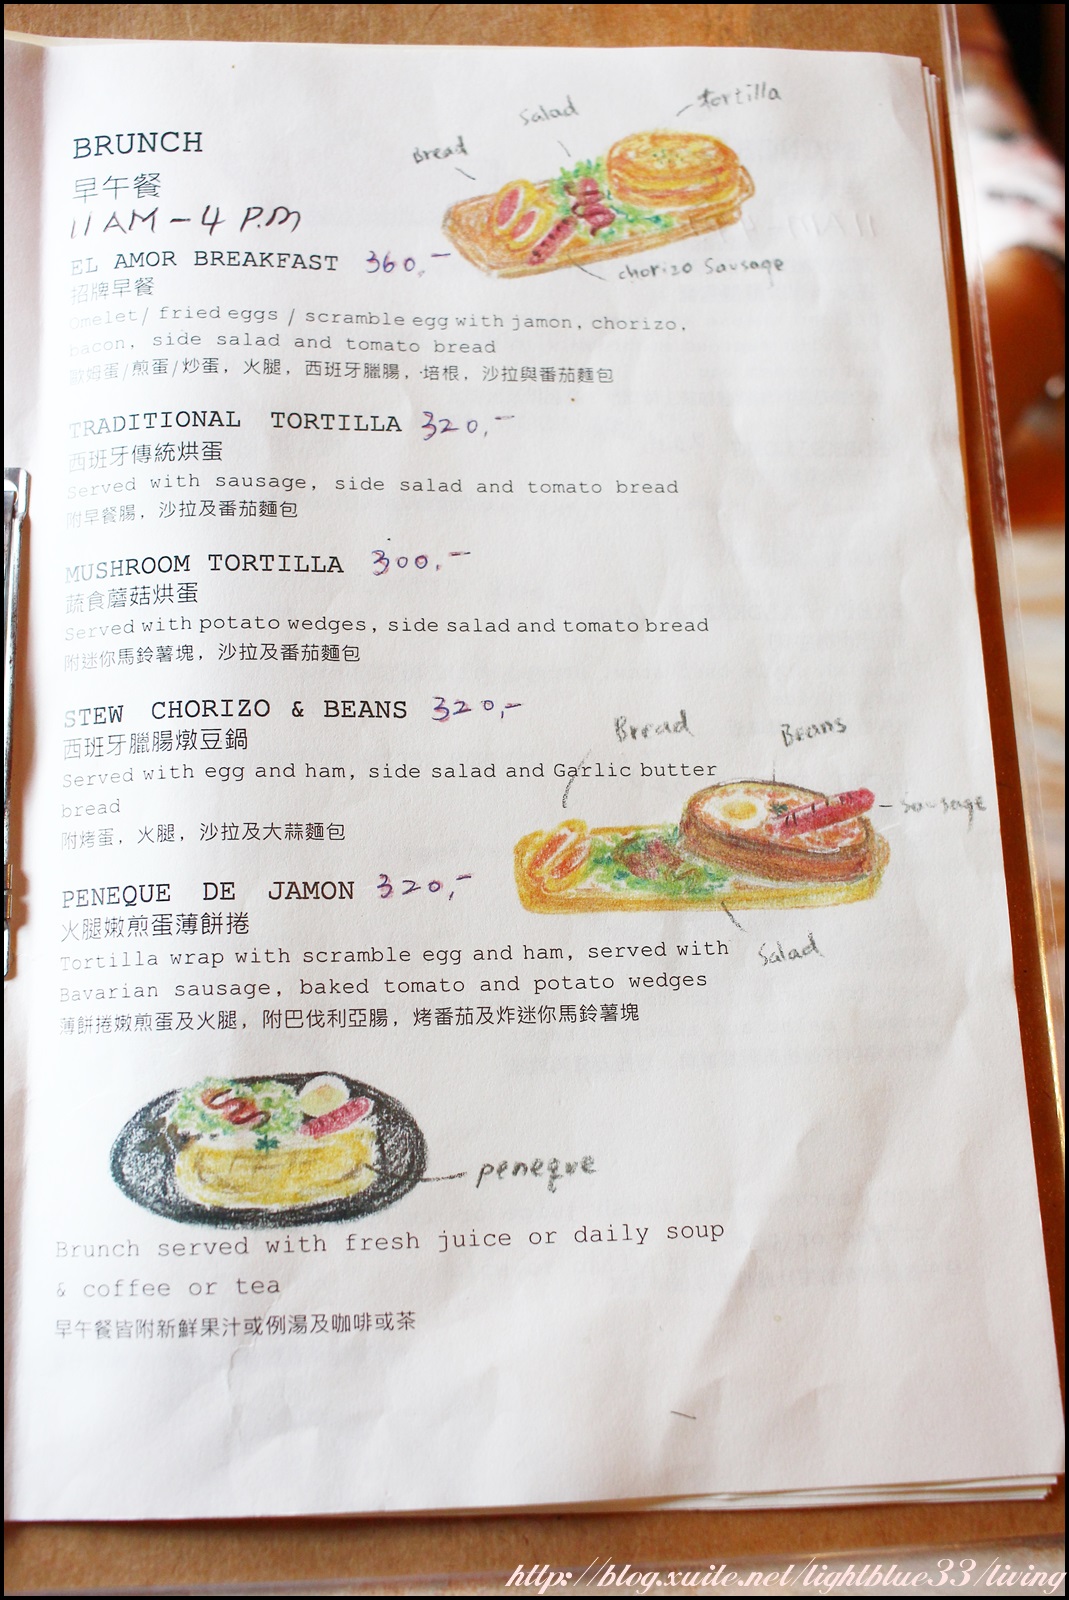 BRUNCH
早午餐
11 AM - 4 P.M
Bread
Salad
tortilla
chorizo Sausage
EL AMOR BREAKFAST 360.-
招牌早餐
Omelet/ fried eggs / scramble egg with jamon, chorizo,
bacon, side salad and tomato bread
歐姆蛋/煎蛋/炒蛋, 火腿, 西班牙臘腸, 培根, 沙拉與番茄麵包
TRADITIONAL TORTILLA 320.-
西班牙傳統烘蛋
Served with sausage, side salad and tomato bread
附早餐腸, 沙拉及番茄麵包
MUSHROOM TORTILLA 300.-
蔬食蘑菇烘蛋
Served with potato wedges, side salad and tomato bread
附迷你馬鈴薯塊, 沙拉及番茄麵包
STEW CHORIZO & BEANS 320.-
西班牙臘腸燉豆鍋
Served with egg and ham, side salad and Garlic butter
bread
附烤蛋, 火腿, 沙拉及大蒜麵包
Bread
Beans
Sausage
Salad
PENEQUE DE JAMON 320.-
火腿嫩煎蛋薄餅捲
Tortilla wrap with scramble egg and ham, served with
Bavarian sausage, baked tomato and potato wedges
薄餅捲嫩煎蛋及火腿, 附巴伐利亞腸, 烤番茄及炸迷你馬鈴薯塊
peneque
Brunch served with fresh juice or daily soup
& coffee or tea
早午餐皆附新鮮果汁或例湯及咖啡或茶
http://blog.xuite.net/lightblue33/living